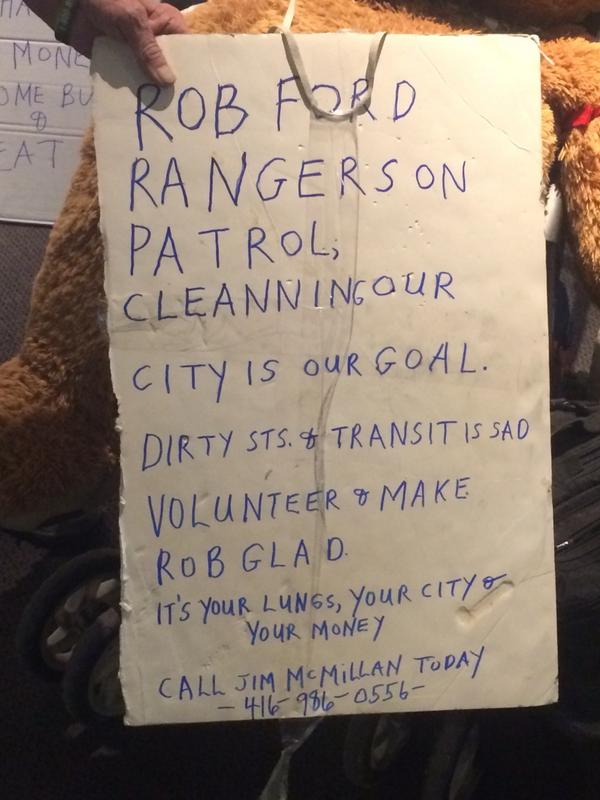 MONE
OME BU
&
EAT
ROB FORD
RANGERS ON
PATROL;
CLEANNING OUR
CITY IS OUR GOAL.
DIRTY STS. & TRANSIT IS SAD
VOLUNTEER & MAKE
ROB GLAD.
IT'S YOUR LUNGS, YOUR CITY &
YOUR MONEY
CALL JIM McMILLAN TODAY
-416-986-0556-